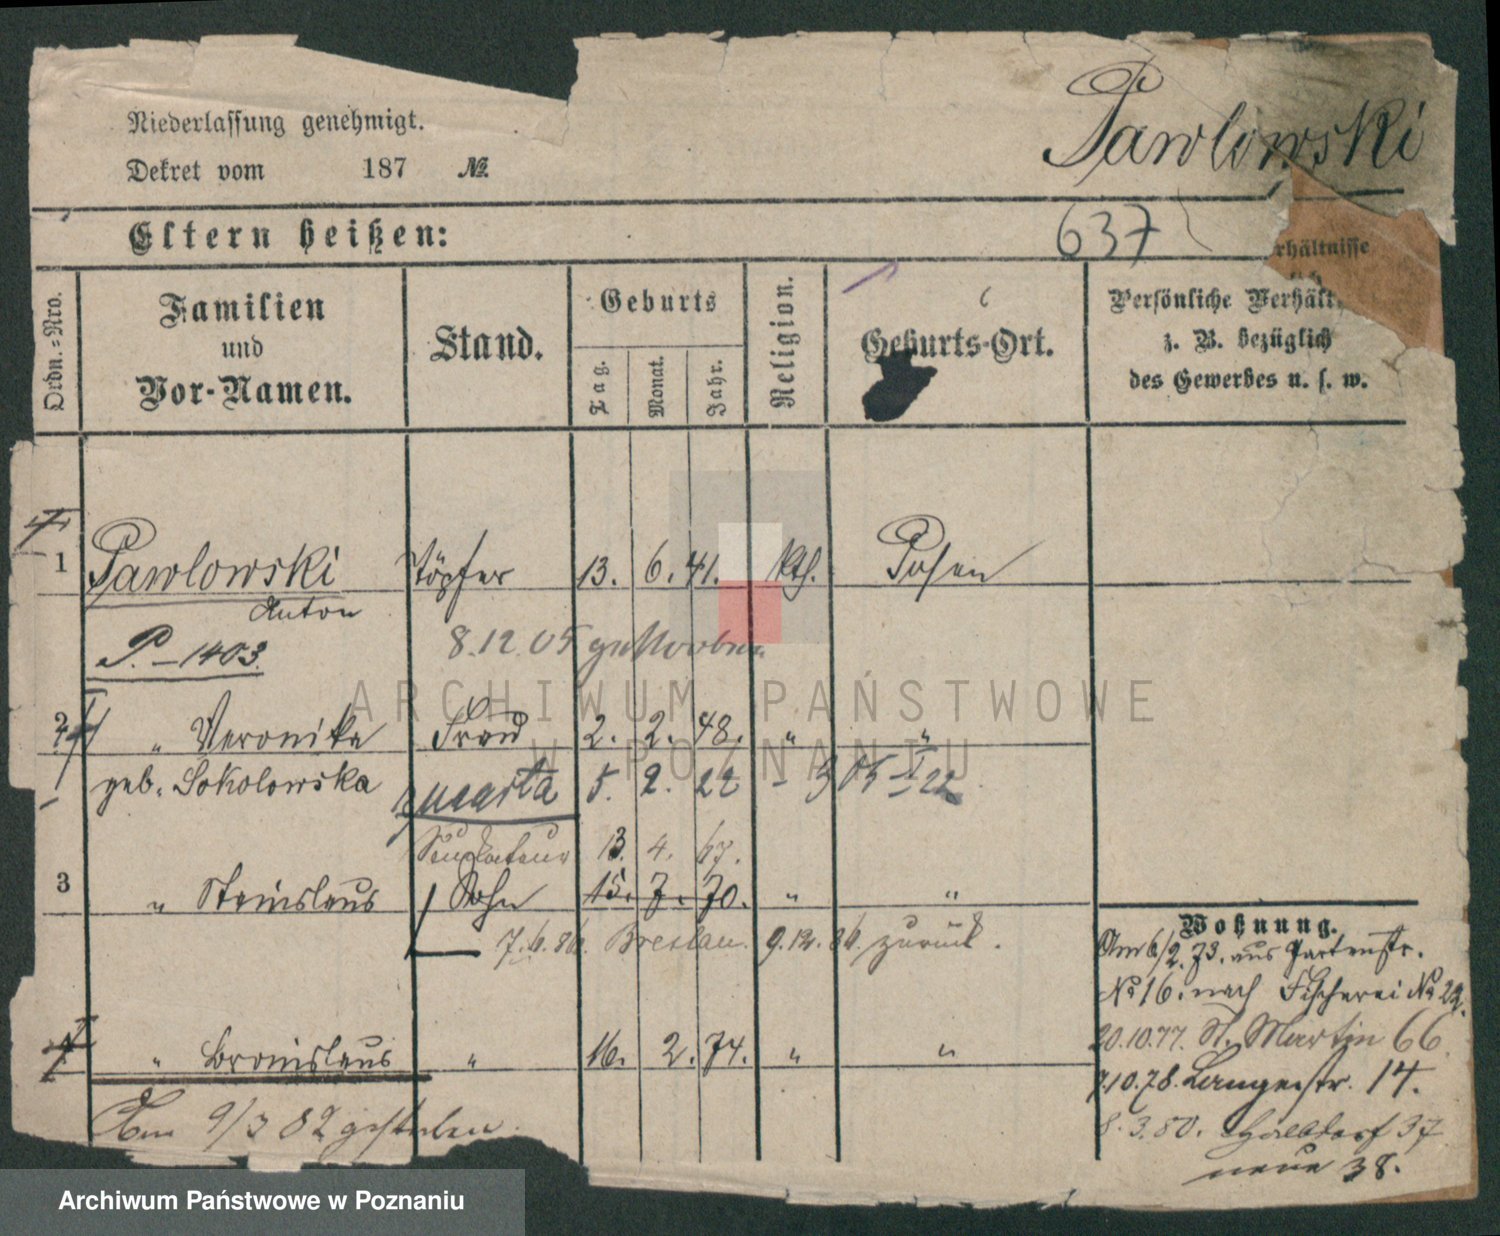 Niederlassung genehmigt.
Dekret vom 187 №.
Pawlowski
Eltern heißen:
637
rhältnisse
Ordn.=Nro.
Familien
und
Vor-Namen.
Stand.
Geburts
Tag.
Monat.
Jahr.
Religion.
Geburts-Ort.
Persönliche Verhält
z. B. bezüglich
des Gewerbes u. s. w.
1 Pawlowski Töpfer 13. 6. 41. kth. Posen
Anton
P. – 1403.
8.12.05 gestorben
2 " Veronika Frau 2. 2. 48. " "
geb. Sokolowska 5. 2. 22
13. 4. 67.
3 " Stanislaus Sohn 15. 7. 70. " "
7.6.86. Breslau. 9.12.86. zurück.
4 " Bronislaus " 16. 2. 74. " "
Am 9/3 82 gestorben.
Wohnung.
Am 6/2. 73. aus Gartenstr.
№ 16. nach Fischerei № 22.
20.10.77. St. Martin 66.
7.10.78. Langestr. 14.
8.3.80. Halbdorf 37
neue 38.
ARCHIWUM PAŃSTWOWE
W POZNANIU
Archiwum Państwowe w Poznaniu